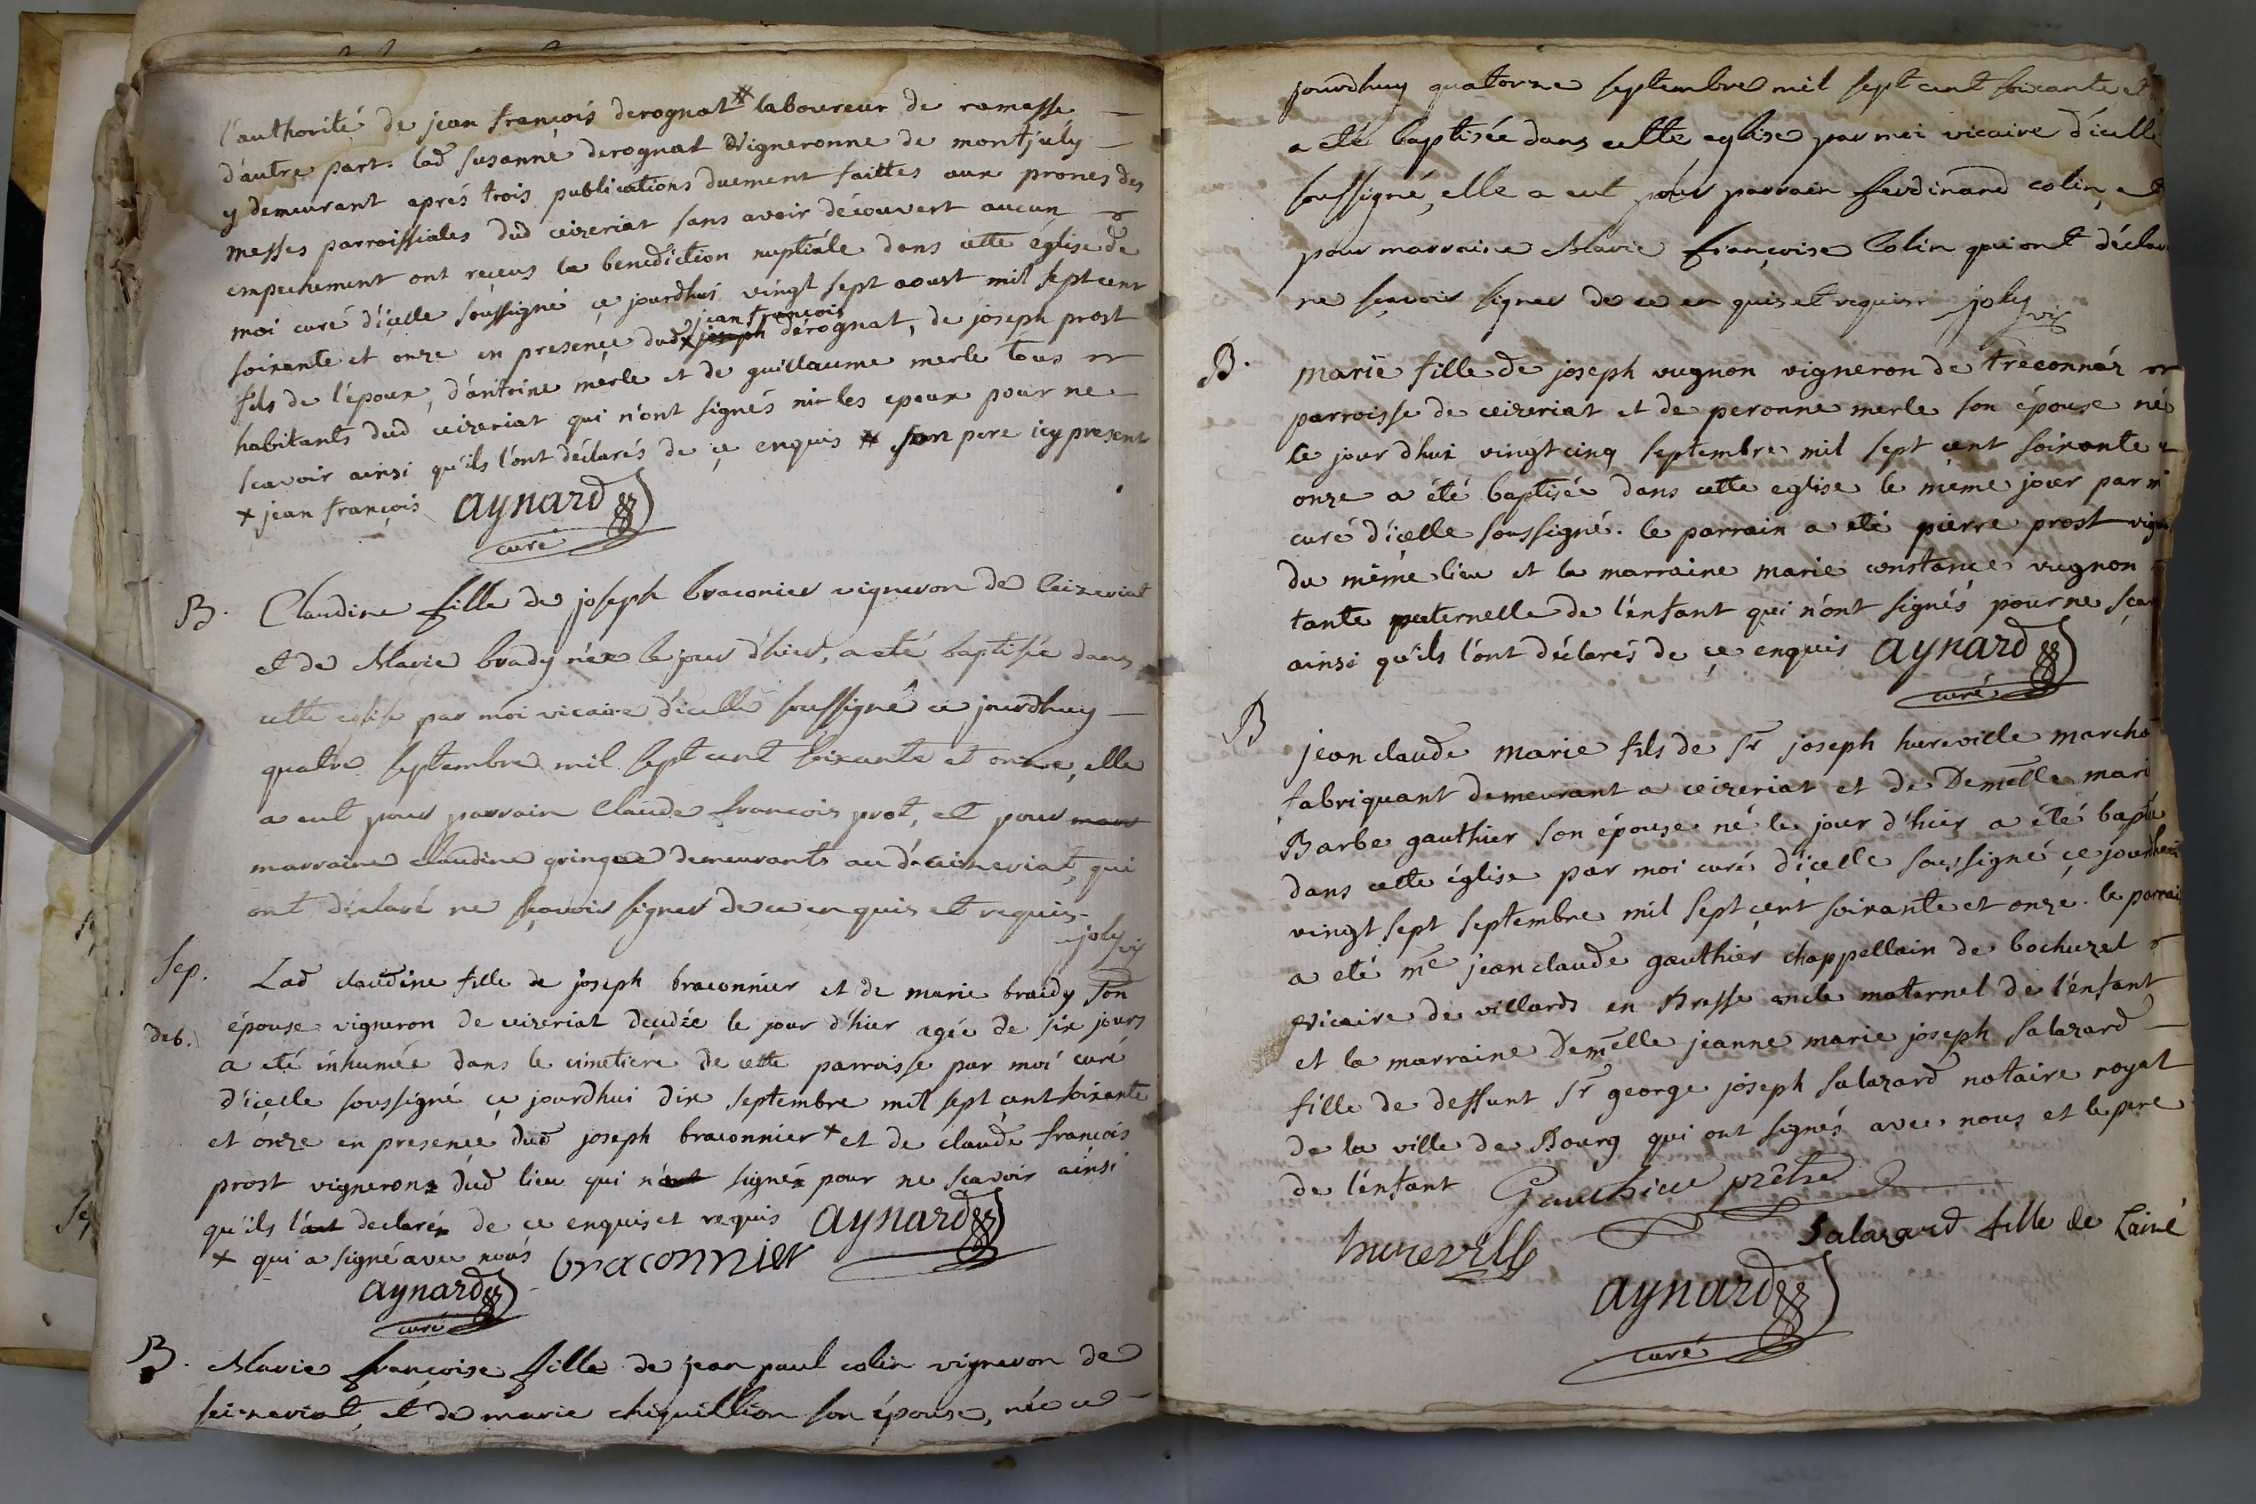 l'authorité de jean françois derognat # laboureur de ramasse
d'autre part. lad susanne derognat vigneronne de montjuly
y demeurant aprés trois publications duement faittes aux prones des
messes parroissiales dud ceizeriat sans avoir découvert aucun
empechement ont reçeus la benediction nuptiale dans cette église de
moi curé d'icelle soussigné ce jourdhui vingt sept aoust mil sept cent
soixante et onze en presence dud x joseph jean françois dérognat, de joseph prost
fils de l'époux, d'antoine merle et de guillaume merle tous
habitants dud ceizeriat qui n'ont signés ni les epoux pour ne
scavoir ainsi qu'ils l'ont déclarés de ce enquis # son pere icy present
x jean françois aynard
curé
B. Claudine fille de joseph braconier vigneron de Ceizeriat
et de Marie brady née le jour d'hier, a eté baptisée dans
cette eglise par moi vicaire d'icelle soussigné ce jourdhuy
quatre septembre mil sept cent soixante et onze, elle
a eut pour parrain Claude françois prot, et pour marr
marraine claudine gringue demeurants au d. ceizeriat, qui
ont déclaré ne sçavoir signer de ce enquis et requis.
joly vic
Sep. Lad claudine fille de joseph braconnier et de marie braidy son
épouse vigneron de ceizeriat decedée le jour d'hier agée de six jours
deb. a eté inhumée dans le cimetiere de cette parroisse par moi curé
d'icelle soussigné ce jourdhui dix septembre mil sept cent soixante
et onze en presence dud joseph braconnier x et de claude françois
prost vigneron dud lieu qui n'ont signé pour ne scavoir ainsi
qu'ils l'ont declaré de ce enquis et requis aynard
x qui a signé avec nous braconnier
aynard
curé
B. Marie françoise fille de jean paul colin vigneron de
seizeriat, et de marie chiquillion son épouse, née ce
jourdhuy quatorze septembre mil sept cent soixante et
a eté baptisée dans cette eglise par moi vicaire d'icelle
soussigné, elle a eut pour parrain ferdinand colin, et
pour marraine Marie françoise Colin qui ont déclar
ne sçavoir signer de ce en quis et requis. joly vic
B. marie fille de joseph vugnon vigneron de treconnàz
parroisse de ceizeriat et de peronne merle son épouse né
le jour d'hui vingt cinq septembre mil sept cent soixante
onze a été baptisée dans cette eglise le meme jour par m
curé d'icelle soussigné. le parrain a eté pierre prost vign
du même lieu et la marraine marie constance vugnon
tante paternelle de l'enfant qui n'ont signés pour ne sçav
ainsi qu'ils l'ont déclarés de ce enquis aynard
curé
B jean claude marie fils de sr joseph hureville march
fabriquant demeurant a ceizeriat et de Demelle mari
Barbe gauthier son épouse né le jour d'hier a été bapt
dans cette église par moi curé d'icelle soussigné ce jourdhui
vingt sept septembre mil sept cent soixante et onze. le parrai
a eté me jean claude gauthier chappellain de bochuzel
vicaire de villards en Bresse oncle maternel de l'enfant
et la marraine Demelle jeanne marie joseph salazard
fille de deffunt sr george joseph salazard notaire royal
de la ville de Bourg qui ont signés avec nous et le pere
de l'enfant Gauthier prêtre
hureville Salazard fille de Lainé
aynard
curé